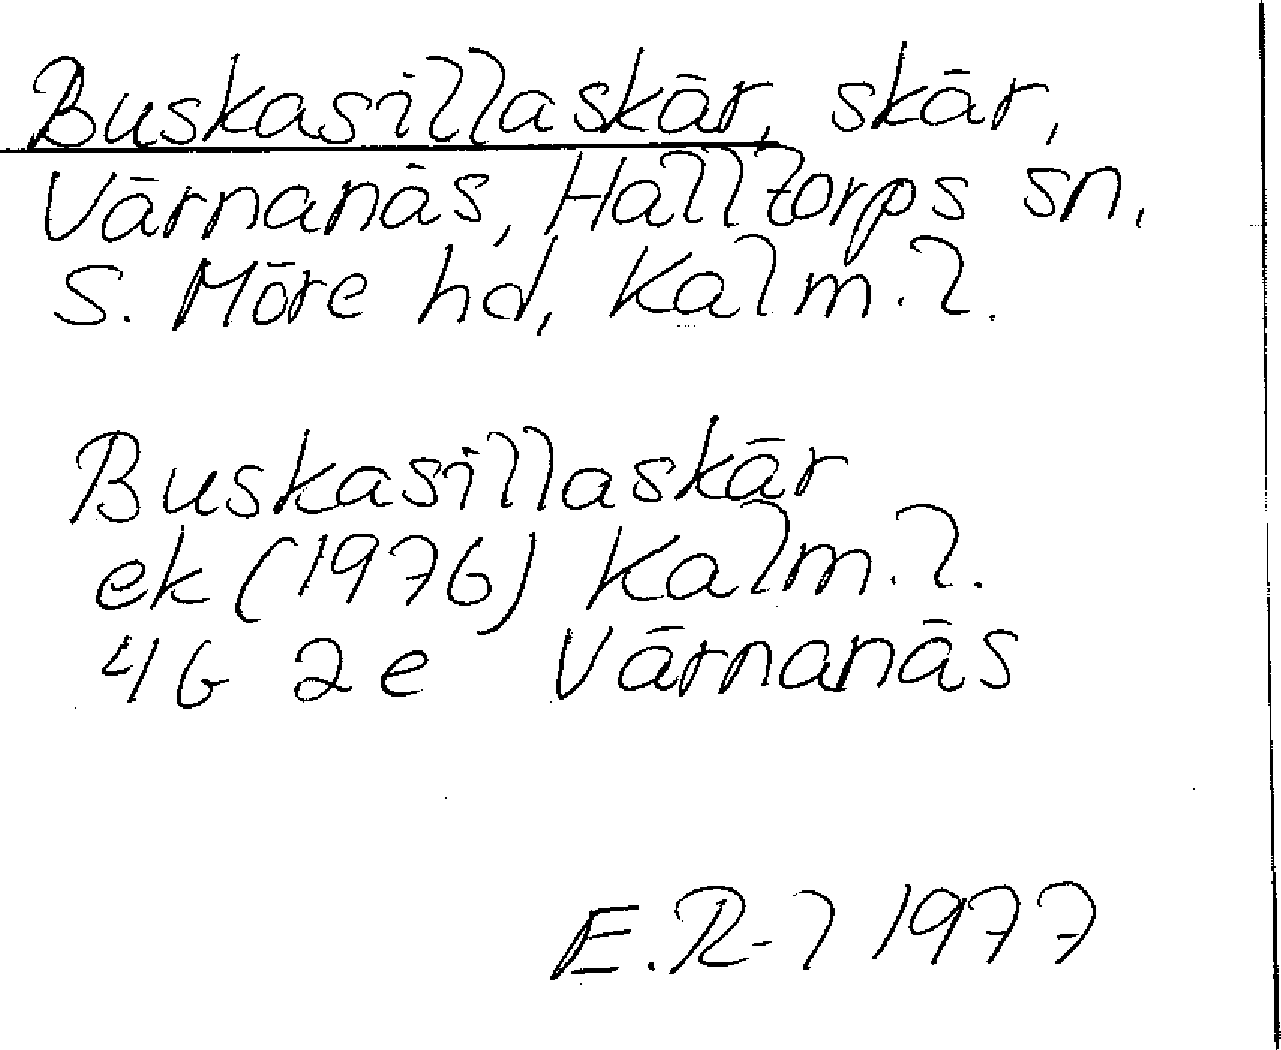 Buskasillaskär, skär,
Värnanäs, Halltorps sn.
S. Möre hd, Kalm. l.
Buskasillaskär
ek (1976) Kalm. l.
4G 2e Värnanäs
E. R-l 1977